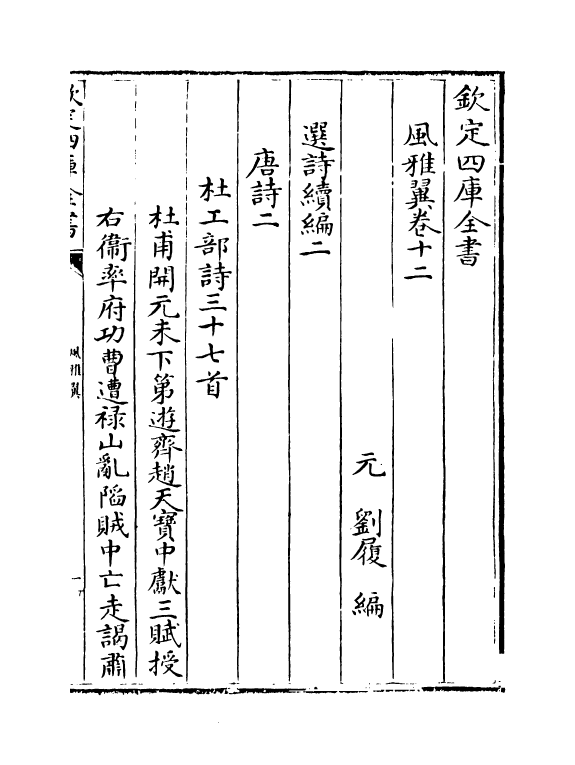 欽定四庫全書
風雅翼卷十二
元　劉履　編
選詩續編二
唐詩二
杜工部詩三十七首
杜甫開元末下第遊齊趙天寶中獻三賦授
右衛率府功曹遭祿山亂陷賊中亡走謁肅
欽定四庫全書
風雅翼
一